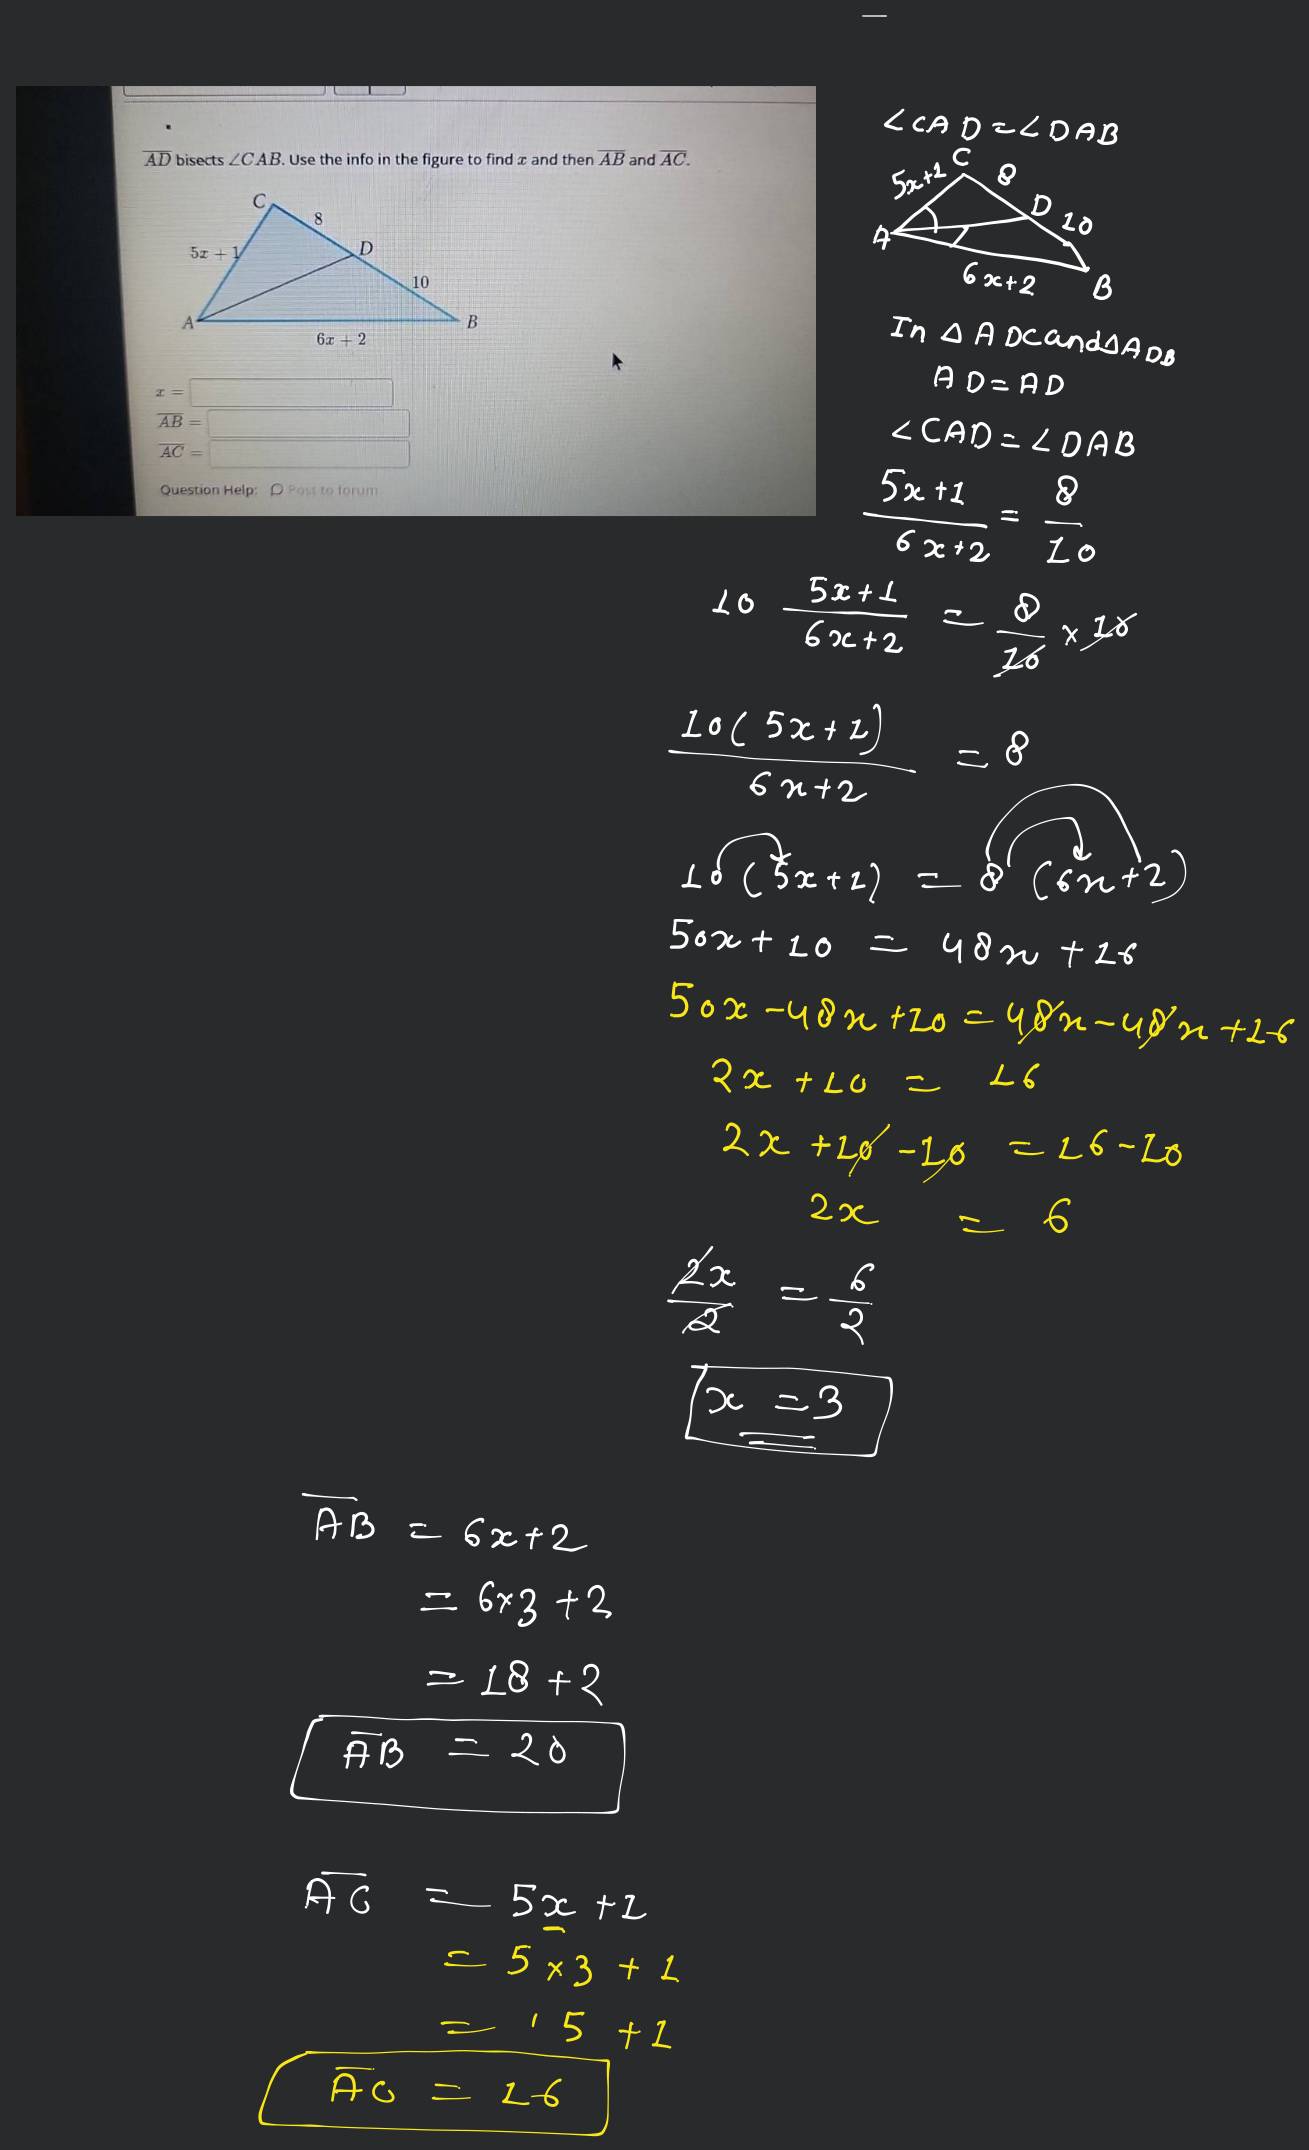 AD bisects ∠CAB. Use the info in the figure to find x and then AB and AC.
C
8
5x + 1
D
10
A
B
6x + 2
x =
AB =
AC =
Question Help: Post to forum
∠CAD = ∠DAB
C
5x+1
8
D
10
A
6x+2
B
In △ADC and △ADB
AD = AD
∠CAD = ∠DAB
5x+1 / 6x+2 = 8 / 10
10 5x+1 / 6x+2 = 8 / 10 × 10
10(5x+1) / 6x+2 = 8
10(5x+1) = 8(6x+2)
50x + 10 = 48x + 16
50x - 48x + 10 = 48x - 48x + 16
2x + 10 = 16
2x + 10 - 10 = 16 - 10
2x = 6
2x / 2 = 6 / 2
x = 3
AB = 6x+2
= 6×3 + 2
= 18 + 2
AB = 20
AC = 5x + 1
= 5 × 3 + 1
= 15 + 1
AC = 16